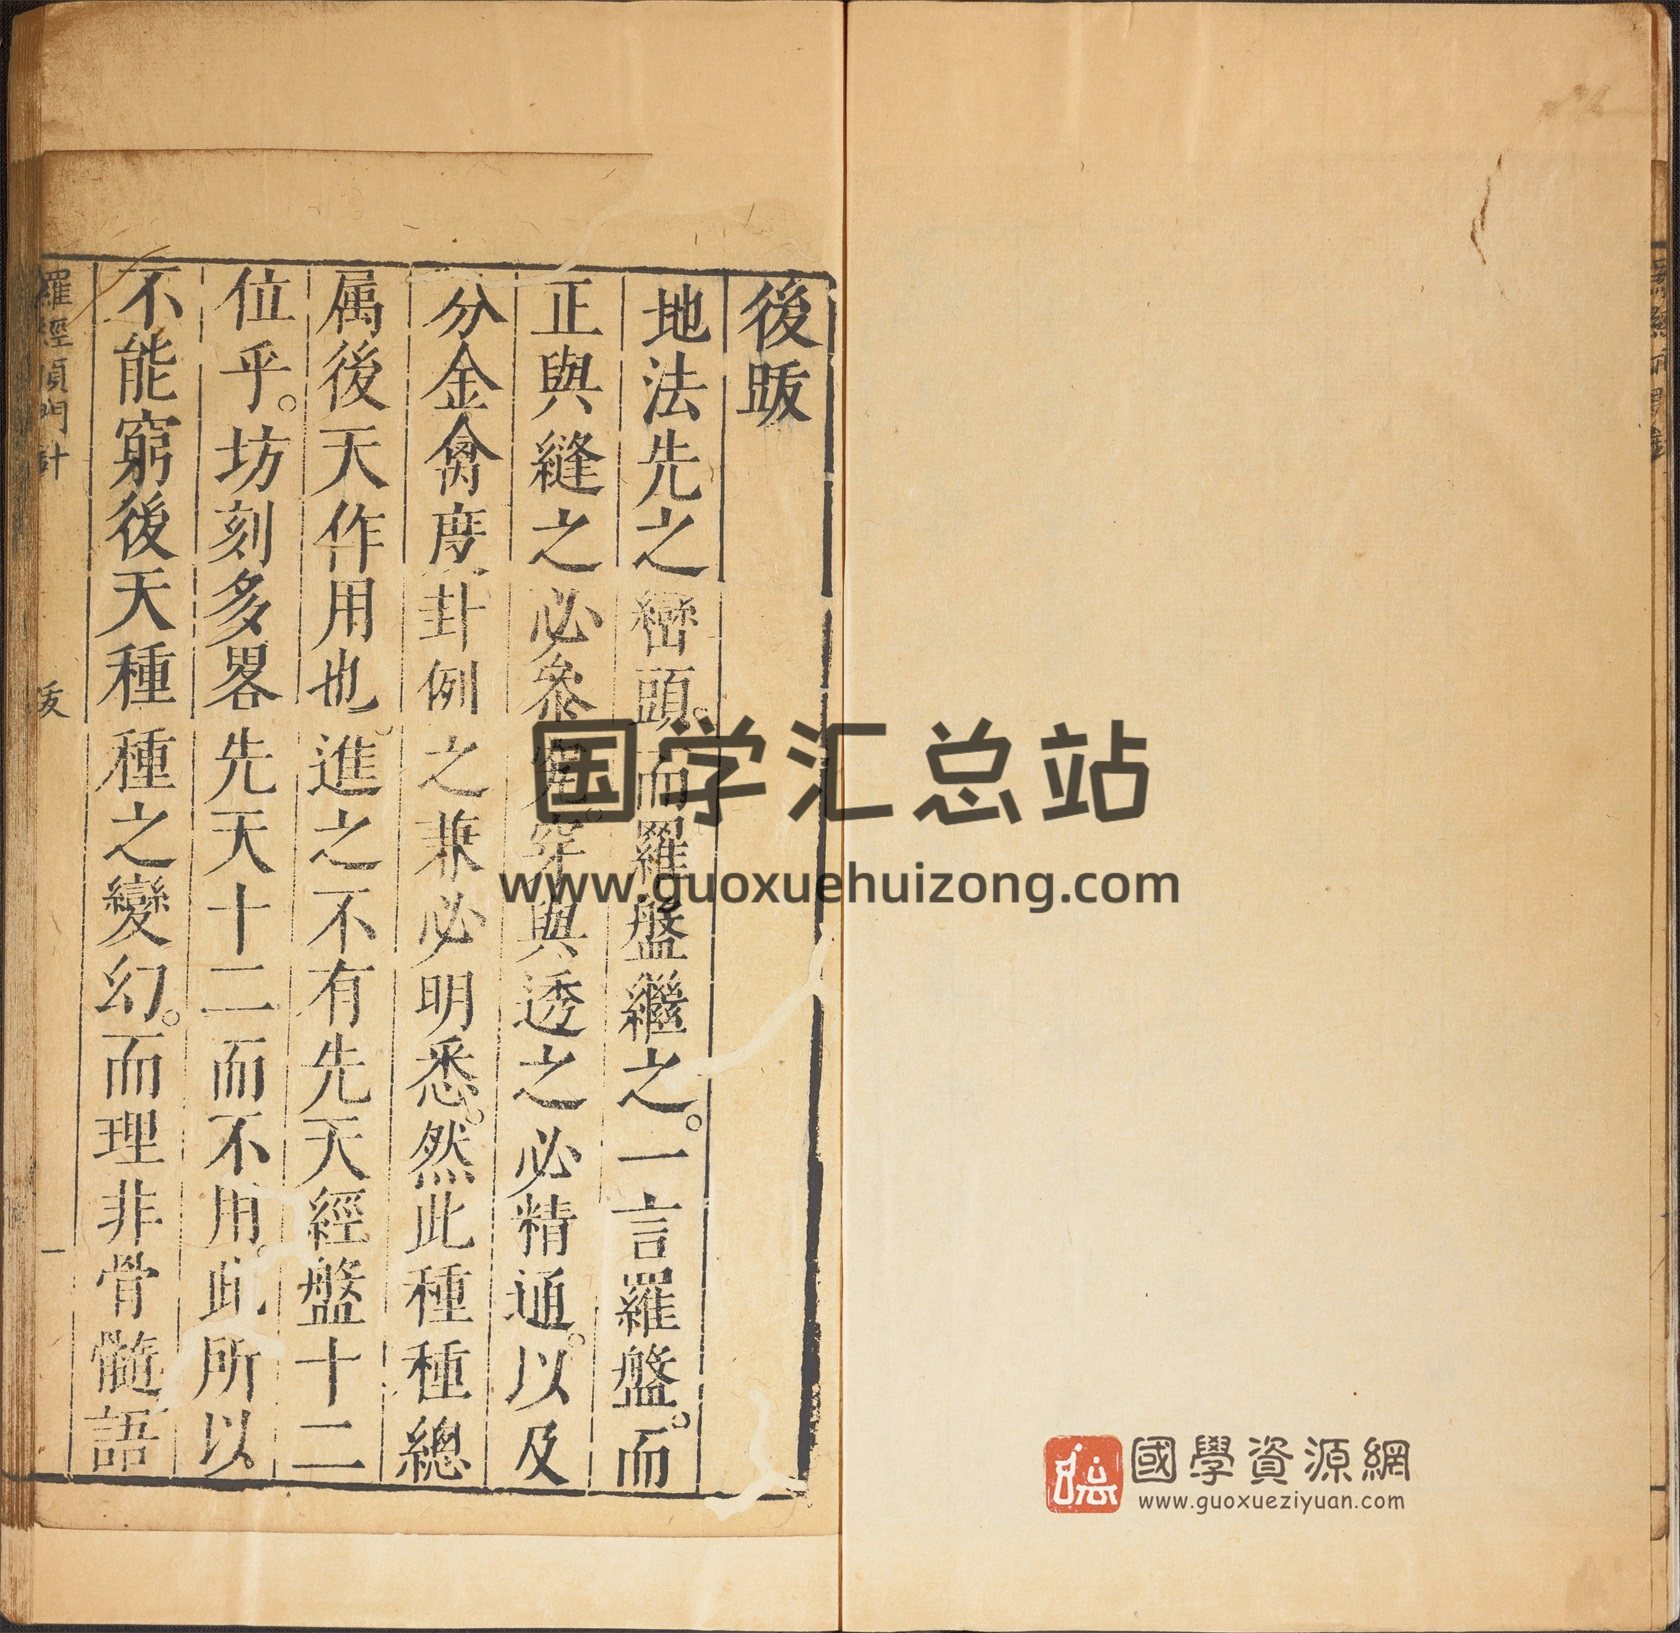 後跋
地法先之巒頭。而羅盤繼之。一言羅盤。而
正與縫之必參究。穿與透之必精通。以及
分金禽度卦例之兼必明悉。然此種種總
属後天作用也。進之不有先天經盤十二
位乎。坊刻多畧先天十二而不用。此所以
不能窮後天種種之變幻。而理非骨髓語
羅經頂門針
跋
一
国学汇总站
www.guoxuehuizong.com
國學資源網
www.guoxueziyuan.com